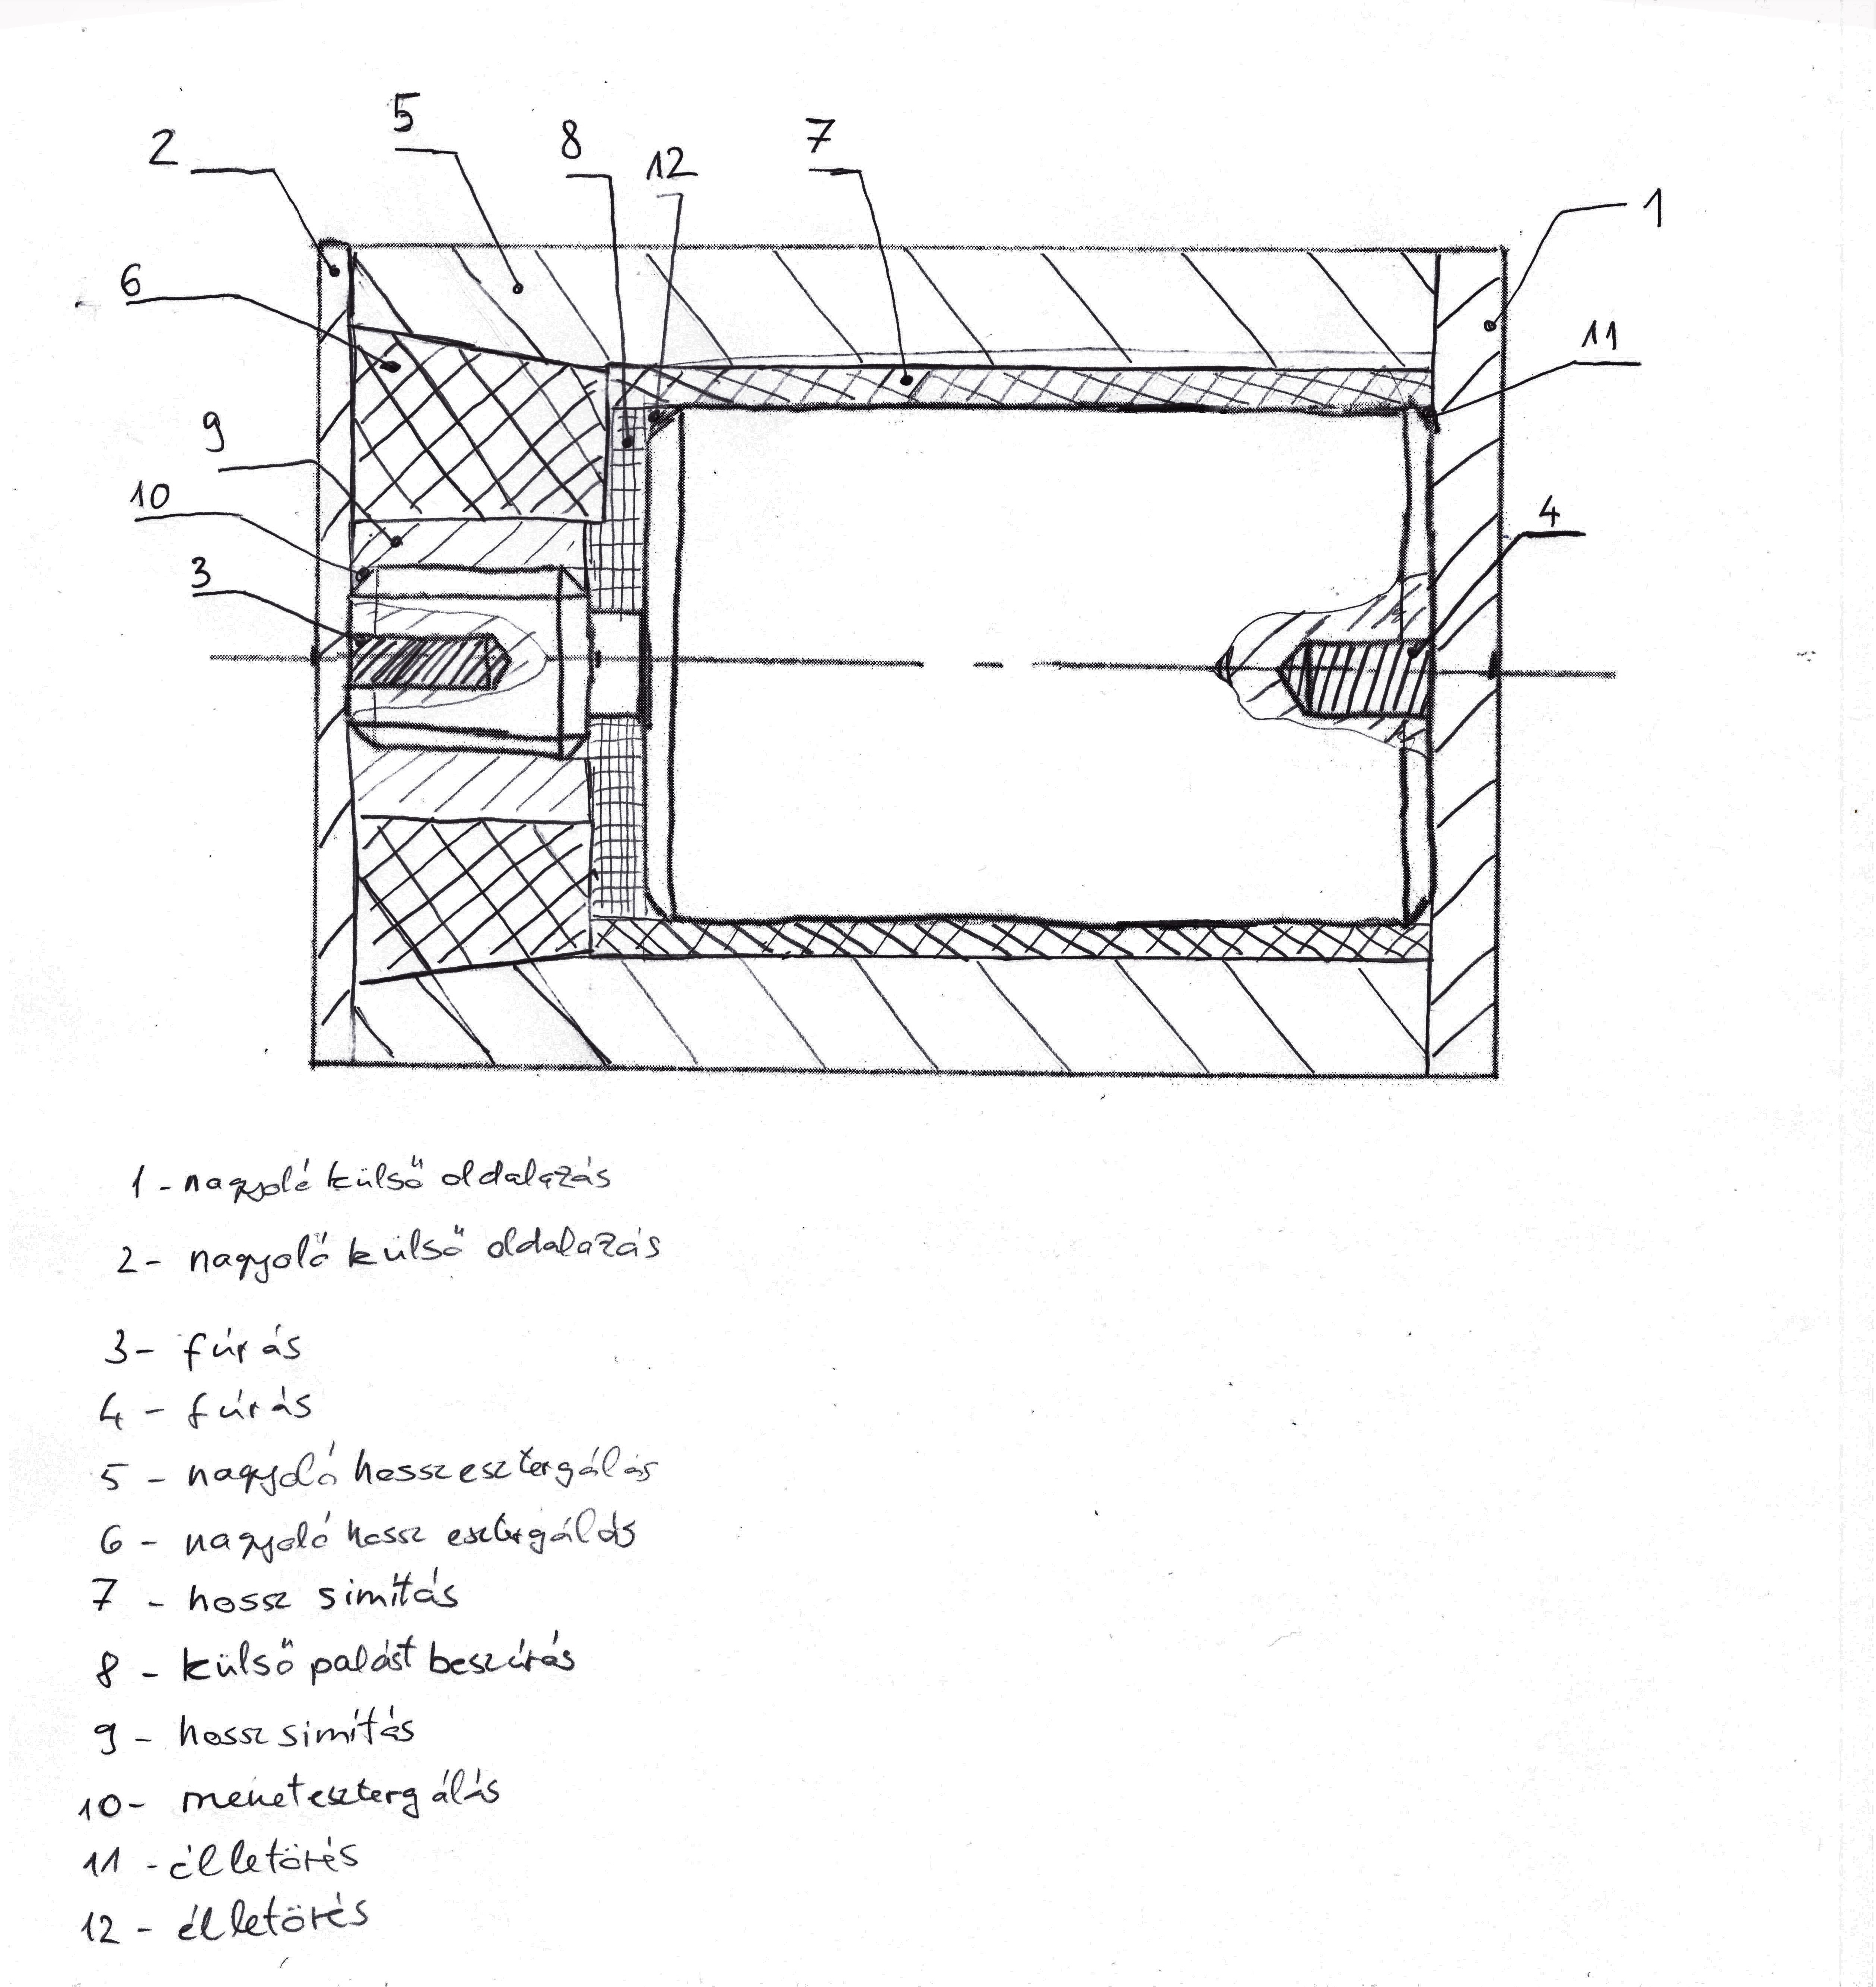 5
2
8
12
7
1
6
11
9
10
4
3
1 - nagyoló külső oldalazás
2 - nagyoló külső oldalazás
3 - fúrás
4 - fúrás
5 - nagyoló hosszesztergálás
6 - nagyoló hossz esztergálás
7 - hossz simítás
8 - külső palást beszúrás
9 - hossz simítás
10 - menetesztergálás
11 - élletörés
12 - élletörés